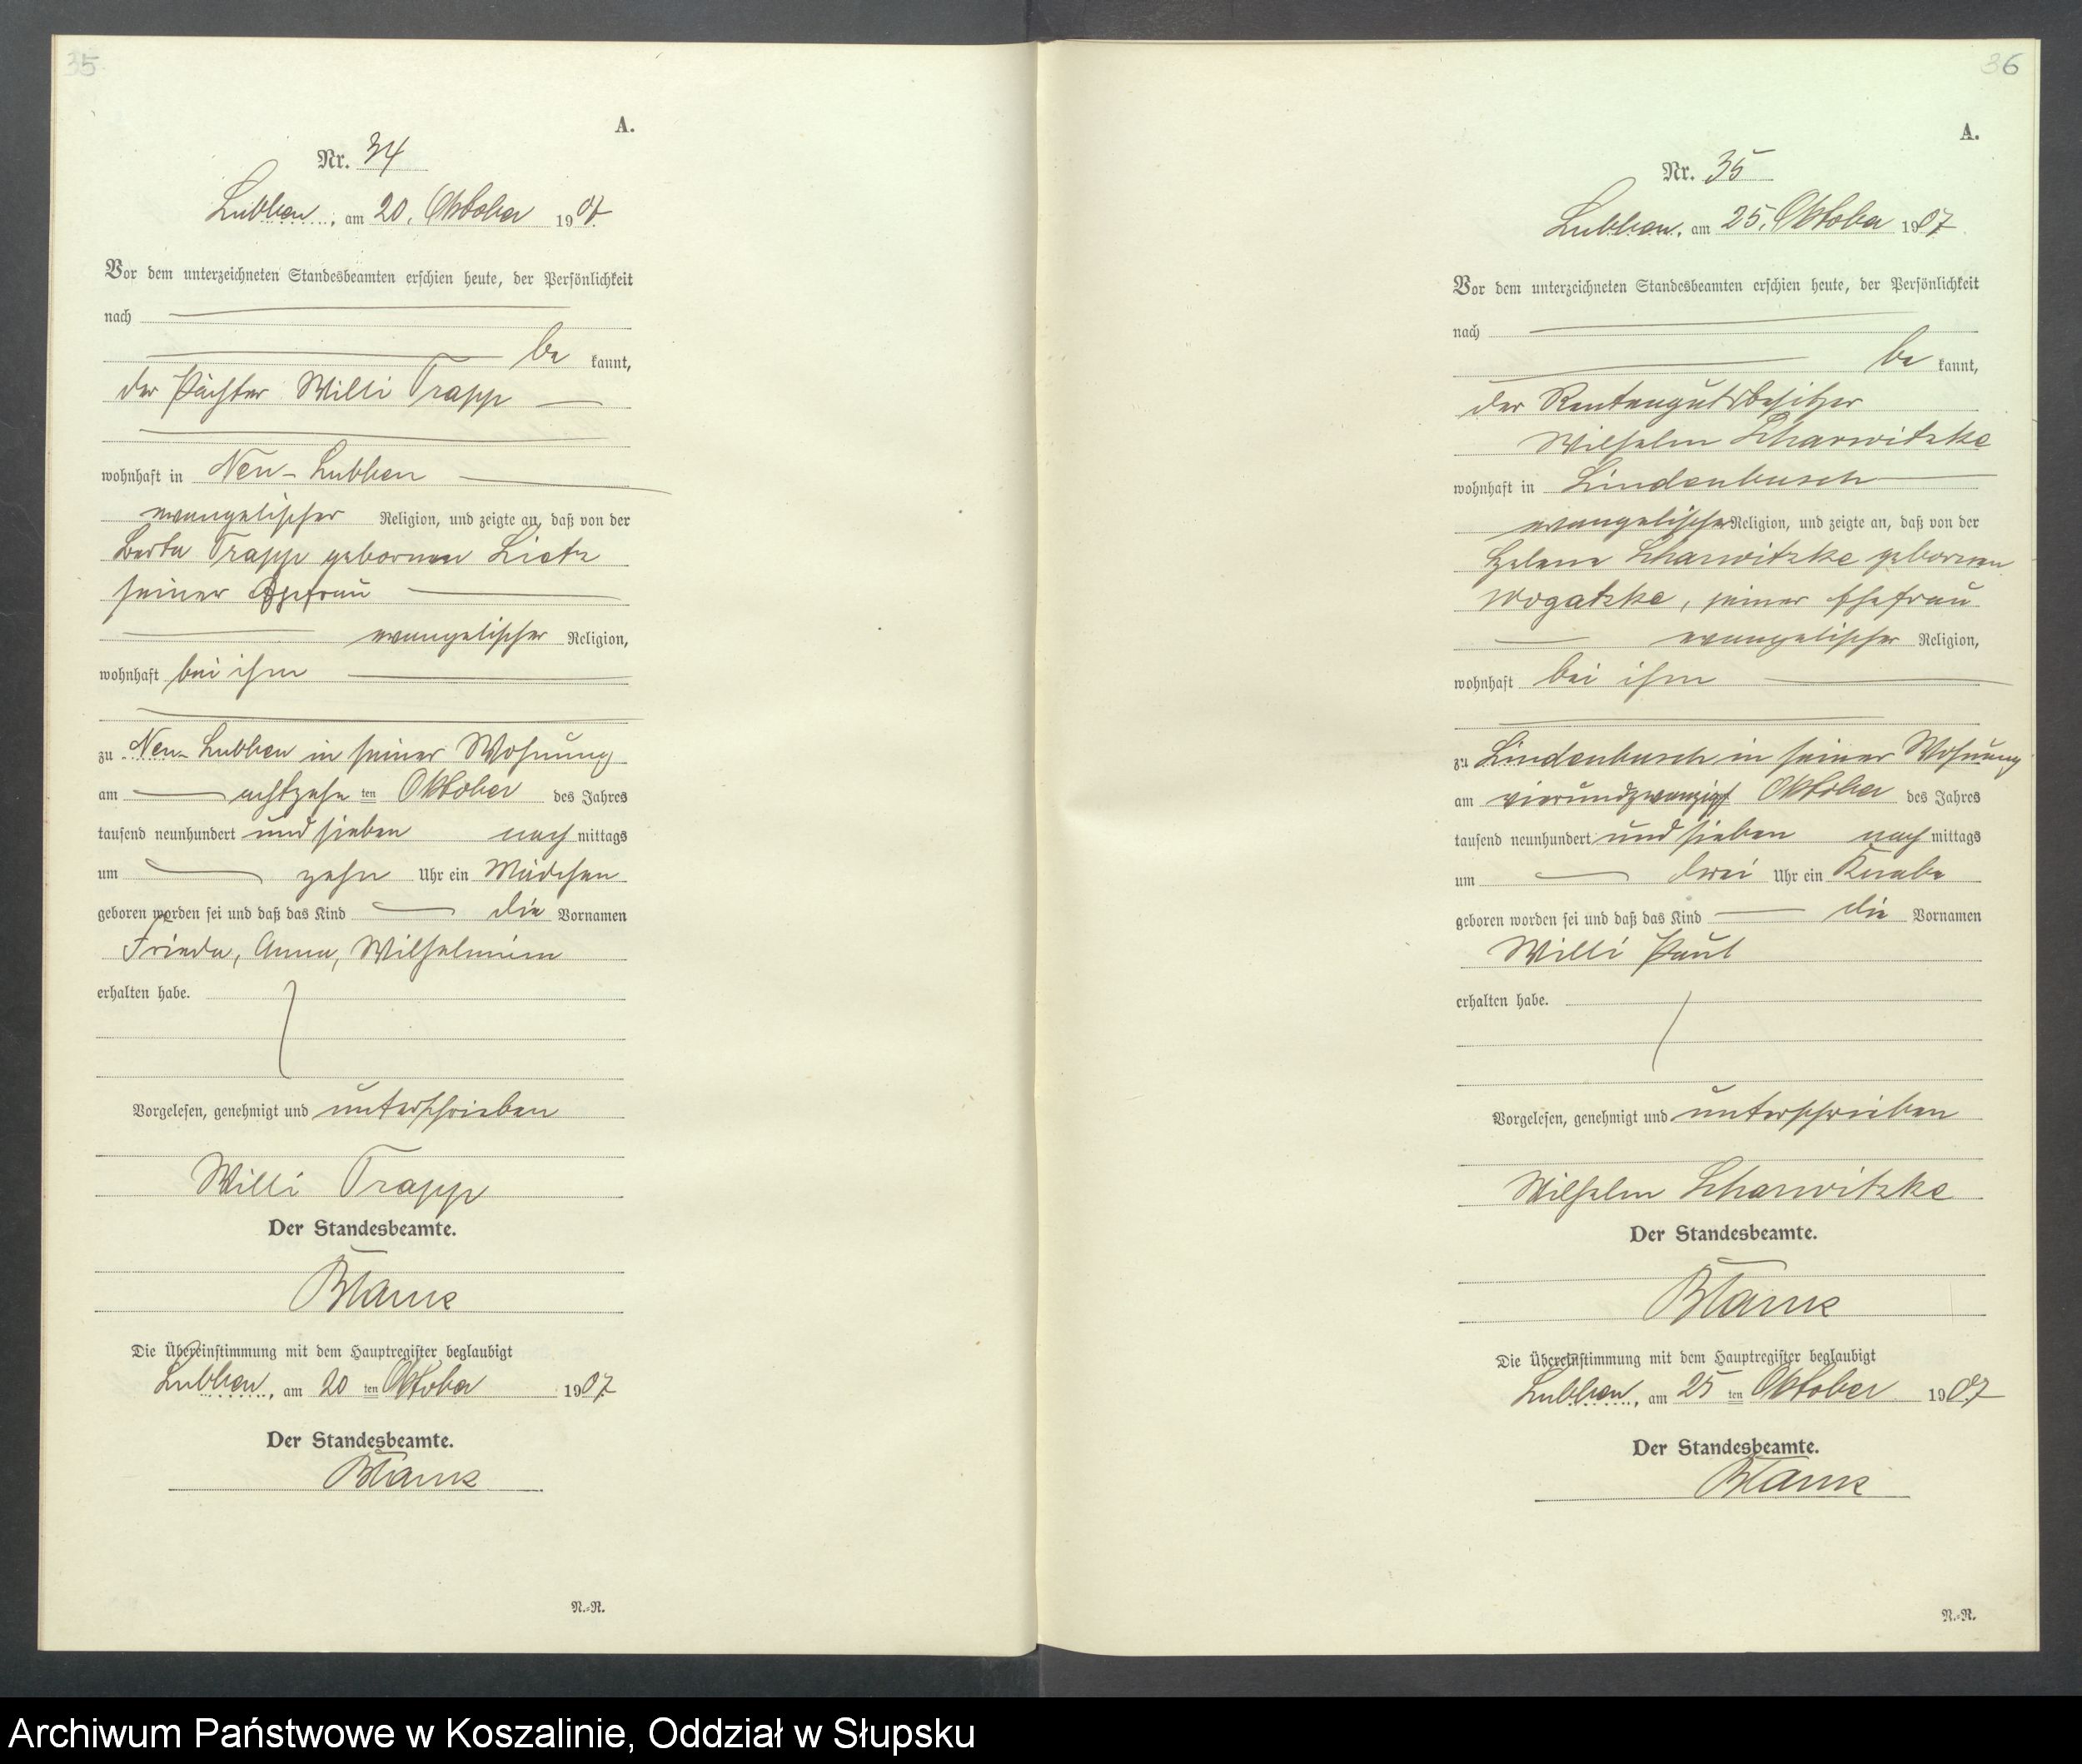 35
A.
Nr. 34
Lubben, am 20. Oktober 1907.
Vor dem unterzeichneten Standesbeamten erschien heute, der Persönlichkeit
nach
be kannt,
der Pächter Willi Trapp
wohnhaft in Neu-Lubben
evangelischer Religion, und zeigte an, daß von der
Berta Trapp gebornen Lietz
seiner Ehefrau
evangelischer Religion,
wohnhaft bei ihm
zu Neu-Lubben in seiner Wohnung
am achtzehn ten Oktober des Jahres
tausend neunhundert und sieben nach mittags
um zehn Uhr ein Mädchen
geboren worden sei und daß das Kind die Vornamen
Frieda, Anna, Wilhelmine
erhalten habe.
Vorgelesen, genehmigt und unterschrieben
Willi Trapp
Der Standesbeamte.
Die Übereinstimmung mit dem Hauptregister beglaubigt
Lubben, am 20 ten Oktober 1907.
Der Standesbeamte.
N.=N.
36
A.
Nr. 35
Lubben, am 25. Oktober 1907.
Vor dem unterzeichneten Standesbeamten erschien heute, der Persönlichkeit
nach
be kannt,
der Rentengutsbesitzer
Wilhelm Scharwitzke
wohnhaft in Lindenbusch
evangelischer Religion, und zeigte an, daß von der
Helene Scharwitzke gebornen
Wogatzke, seiner Ehefrau
evangelischer Religion,
wohnhaft bei ihm
zu Lindenbusch in seiner Wohnung
am vierundzwanzigst Oktober des Jahres
tausend neunhundert und sieben nach mittags
um drei Uhr ein Knabe
geboren worden sei und daß das Kind die Vornamen
Willi Paul
erhalten habe.
Vorgelesen, genehmigt und unterschrieben
Wilhelm Scharwitzke
Der Standesbeamte.
Die Übereinstimmung mit dem Hauptregister beglaubigt
Lubben, am 25 ten Oktober 1907
Der Standesbeamte.
N.=N.
Archiwum Państwowe w Koszalinie, Oddział w Słupsku